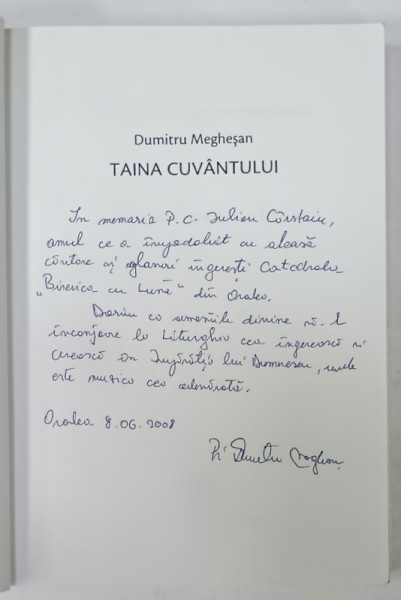 Dumitru Megheşan
TAINA CUVÂNTULUI
In memoria P.C. Iulian Cârstoiu,
omul ce a împodobit cu aleasă
cântare și glasuri îngerești Catedrala
„Biserica cu Lună” din Oradea.
Dorim ca armoniile divine să-l
înconjoare la Liturghia cea îngerească și
cerească din Împărăția lui Dumnezeu, unde
este muzica cea adevărată.
Oradea 8.06.2008
Pr. Dumitru Megheșan